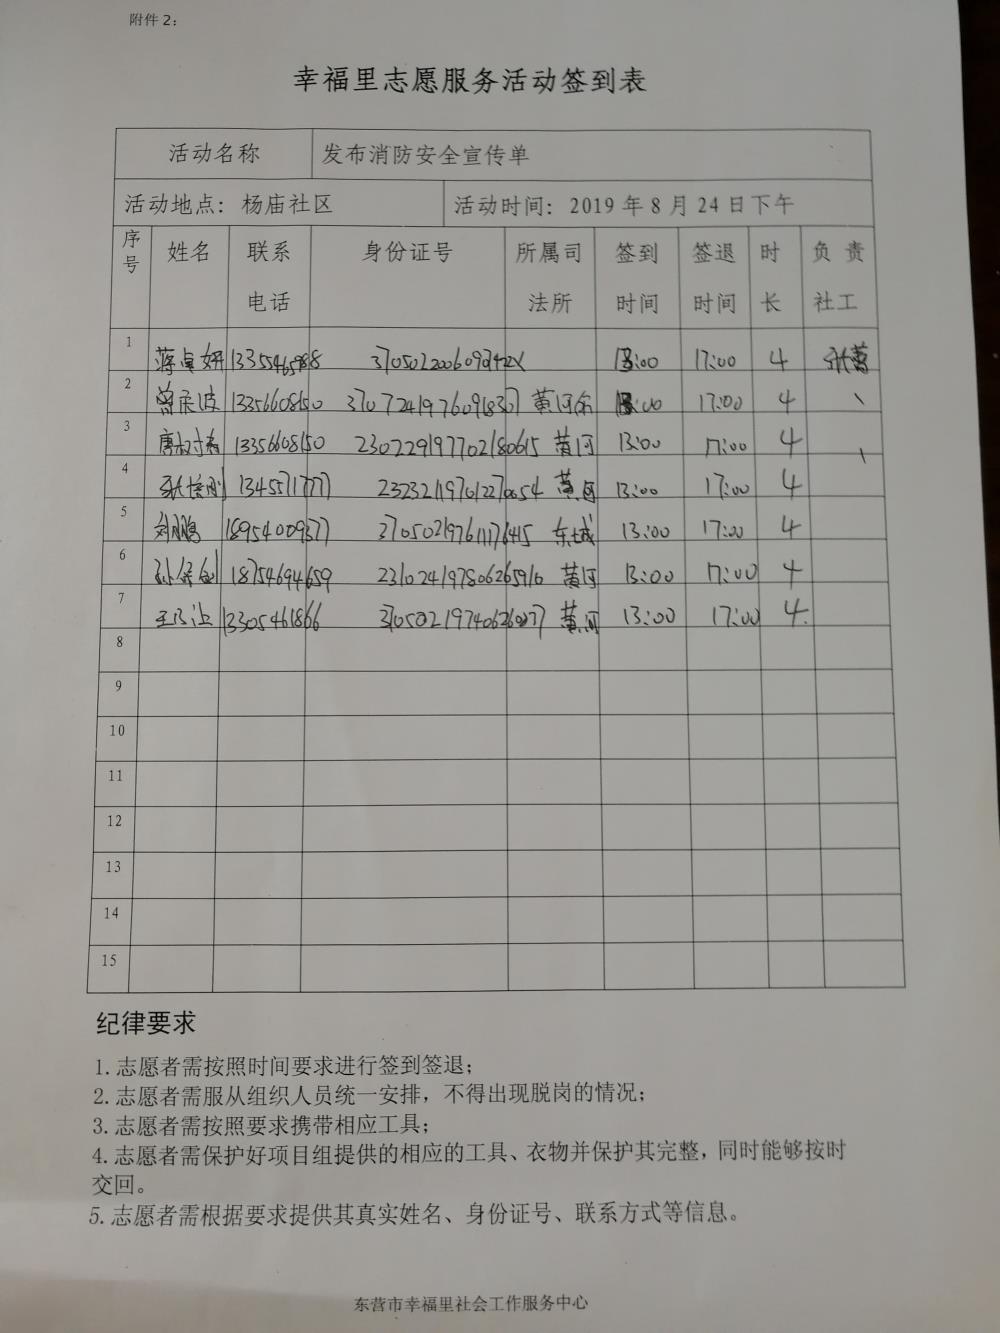 附件 2：
幸福里志愿服务活动签到表
活动名称 发布消防安全宣传单
活动地点：杨庙社区 活动时间：2019 年 8 月 24 日下午
序号 姓名 联系电话 身份证号 所属司法所 签到时间 签退时间 时长 负责社工
1 13:00 17:00 4
2 13356608150 黄河 13:00 17:00 4
3 13356608150 230229197702180615 黄河 13:00 17:00 4
4 13455717777 黄河 13:00 17:00 4
5 刘鹏 18954009377 东城 13:00 17:00 4
6 18754694659 黄河 13:00 17:00 4
7 13305461866 黄河 13:00 17:00 4
8
9
10
11
12
13
14
15
纪律要求
1. 志愿者需按照时间要求进行签到签退；
2. 志愿者需服从组织人员统一安排，不得出现脱岗的情况；
3. 志愿者需按照要求携带相应工具；
4. 志愿者需保护好项目组提供的相应的工具、衣物并保护其完整，同时能够按时
交回。
5. 志愿者需根据要求提供其真实姓名、身份证号、联系方式等信息。
东营市幸福里社会工作服务中心